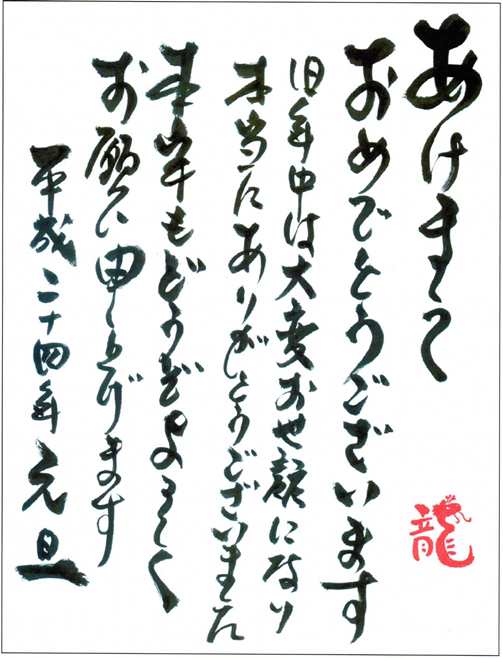 あけまして
おめでとうございます
旧年中は大変お世話になり
本当にありがとうございました
本年もどうぞよろしく
お願い申し上げます
平成二十四年 元旦
龍